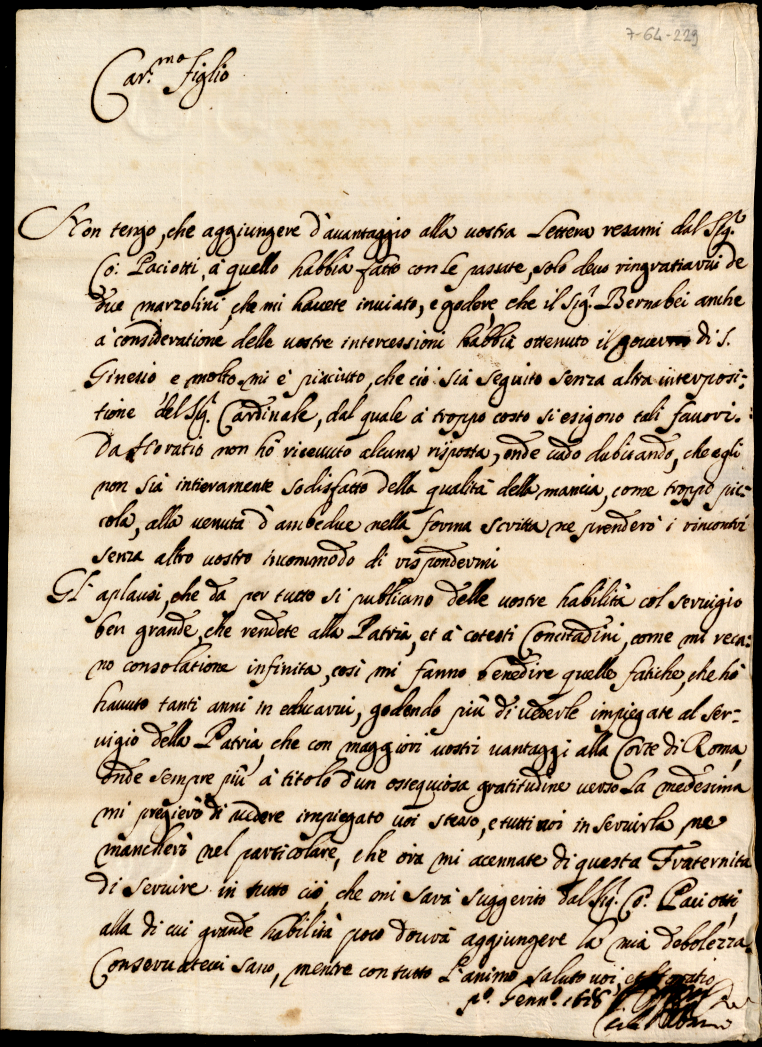 7-64-229
Car.mo figlio
Non tengo, che aggiungere d'avantaggio alla vostra lettera resami dal Sig.r
Co: Paciotti, à quello habbia fatto con le passate, solo devo ringratiarvi de
due marzolini, che mi havete inviato, e godere, che il Sig.r Bernabei anche
à consideratione delle vostre intercessioni habbia ottenuto il governo di S.
Ginesio e molto mi è piaciuto, che ciò sia seguito senza altra interposi:
tione del Sig.r Cardinale, dal quale à troppo costo si esigono tali favori.
Da Horatio non hò ricevuto alcuna risposta, onde vado dubitando, che egli
non sia intieramente sodisfatto della qualità della mancia, come troppo pic:
cola, alla venuta d'ambedue nella forma scritta ne prenderò i rincontri
senza altro vostro incommodo di rispondermi
Gl'aplausi, che da per tutto si publicano delle vostre habilità col servigio
ben grande, che rendete alla Patria, et à cotesti Concitadini, come mi reca:
no consolatione infinita, così mi fanno benedire quelle fatiche, che hò
havuto tanti anni in educarvi, godendo più di vederle impiegate al ser:
vigio della Patria, che con maggiori vostri vantaggi alla Corte di Roma,
onde sempre più à titolo d'un ossequiosa gratitudine verso la medesima
mi pregierò di vedere impiegato voi stesso, e tutti noi in servirla, ne
mancherò nel particolare, che ora mi acennate di questa Fraternita
di servire in tutto ciò, che mi sarà suggerito dal Sig.r Co: Paciotti
alla di cui grande habilità poco dovrà aggiungere la mia debolezza.
Conservatevi sano, mentre con tutto l'animo saluto voi, et Horatio
p.o Genn.o